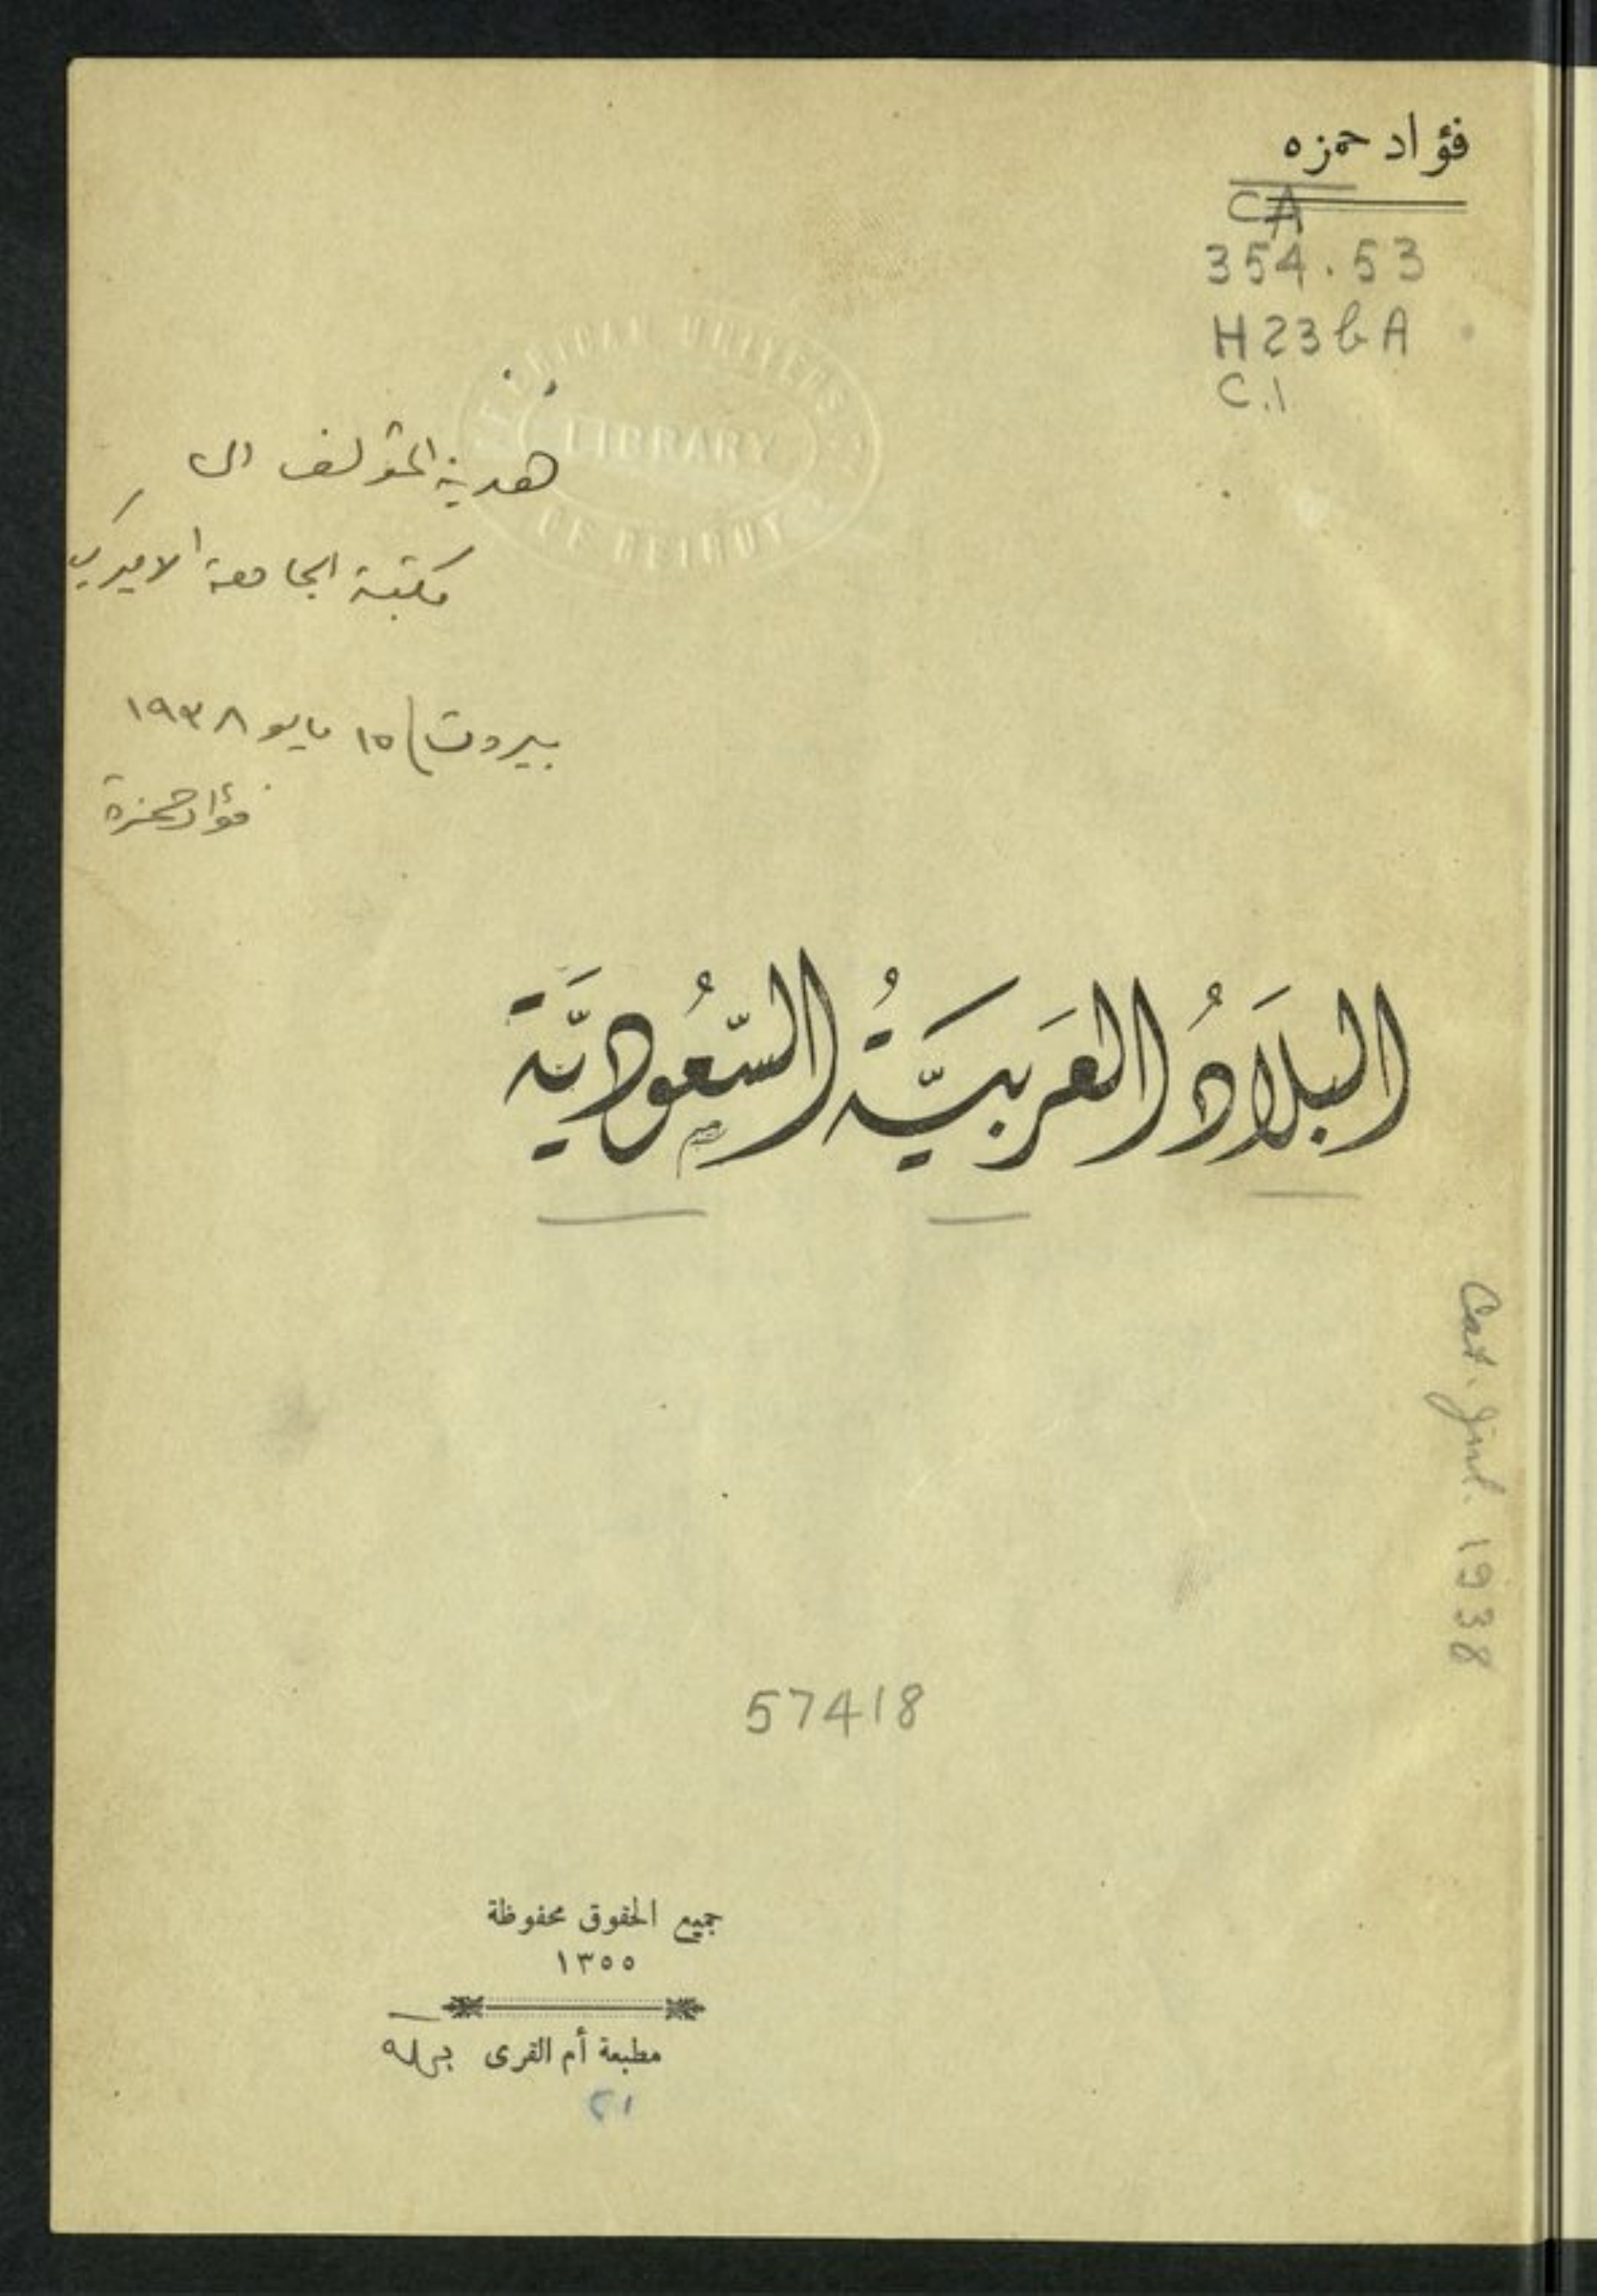 فؤاد حمزه
CA
354.53
H23bA
C.1
AMERICAN UNIVERSITY
LIBRARY
OF BEIRUT
هدية المؤلف الى
مكتبة الجامعة الاميركية
بيروت / ١٥ مايو ١٩٣٨
فؤاد حمزة
البلَادُ العَرَبيَّةُ السّعُوديَّة
Cat. Jul. 1938
57418
جميع الحقوق محفوظة
١٣٥٥
مطبعة أم القرى بمكة
٢١